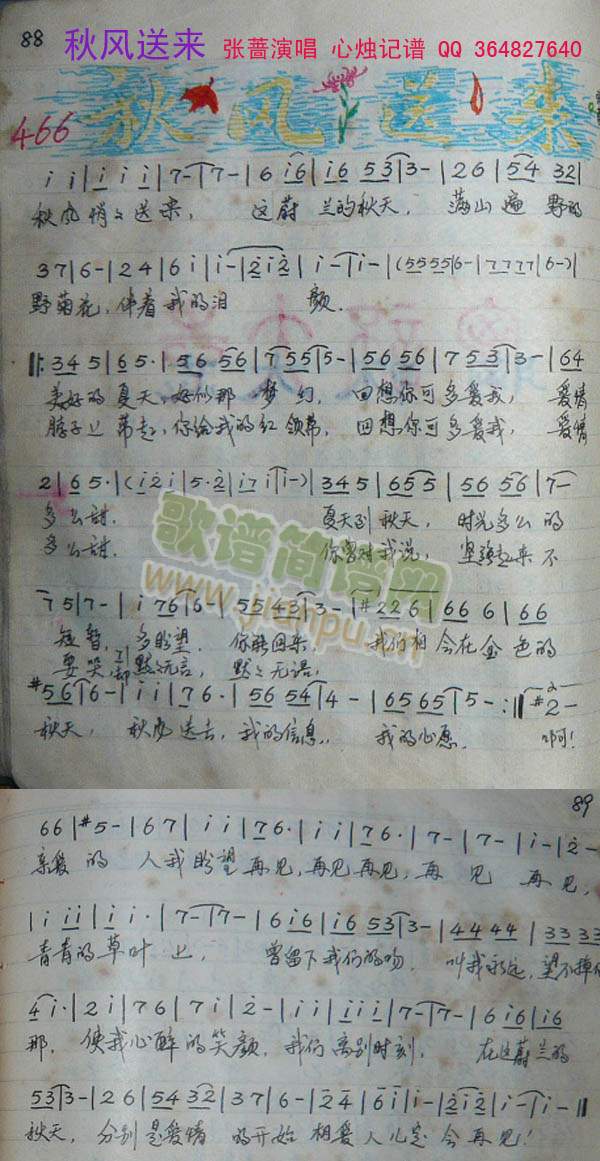 88 秋风送来 张蔷演唱 心烛记谱 QQ 364827640
秋风送来
466
i i | i i i | 7- | 7- | 6 i6 | i6 53 | 3- | 26 | 54 32 |
秋风悄々送来, 这蔚兰的秋天, 满山遍野的
37 | 6- | 24 | 6 i | i- | 2i2 | i- | i- | (5555 | 6- | 7777 | 6-) |
野菊花, 伴着我的泪颜.
‖: 345 | 65· | 56 56 | 755 | 5- | 56 56 | 7 53 | 3- | 64
美好的夏天, 好似那梦幻, 回想你可多爱我, 爱情
脖子上 带起, 你给我的红领带, 回想你可多爱我, 爱情
2 | 65· | (i2i | 5·2 | i7i | i-) | 345 | 655 | 56 56 | 7-
多么甜. 夏天到秋天, 时光多么的
多么甜. 你曾对我说, 坚强起来不
歌谱简谱网
www.jianpu.cn
75 | 7- | i 76 | 6- | 5543 | 3- | #226 | 66 6 | 66
短暂, 多盼望, 你能回来, 我们相会在金色的
要哭, 却默々无言, 默々无语,
#56 | 6- | i i | 76· | 56 54 | 4- | 65 65 | 5- :‖ #2-
秋天, 秋风送去, 我的信息, 我的心愿. 啊!
89
66 | #5- | 67 | i i | 76· | i i | 76· | 7- | 7- | i- | 2-
亲爱的人我盼望再见, 再见再见, 再见 再见,
| i ii | i i· | 7- | 7- | 6 i6 | i6 53 | 3- | 44 44 | 33 33
青青的草叶上, 曾留下我们的吻, 叫我永远, 望不掉你
4 i· | 2i | 76 | 7i | 2- | i i | i i i | 7- | 7- | 6 i6 | i6
那, 使我心醉的笑颜, 我们离别时刻, 在这蔚兰的
53 | 3- | 26 | 54 32 | 37 | 6- | 24 | 6i | i- | 2i2 | i- | i- ‖
秋天, 分别是爱情的开始 相爱人儿定会再见!